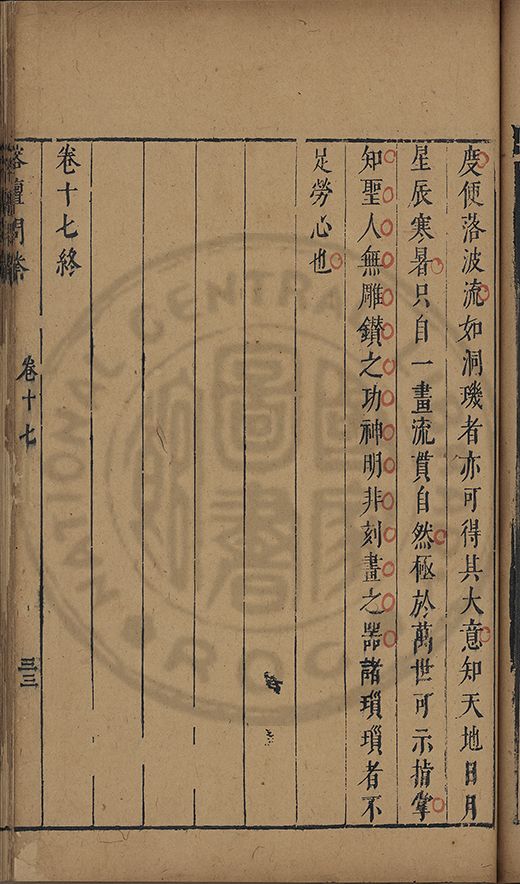 度便落波流如洞璣者亦可得其大意知天地日月
星辰寒暑只自一畫流貫自然極於萬世可示指掌
知聖人無雕鑚之功神明非刻畫之器諸瑣瑣者不
足勞心也
卷十七終
榕壇問答
卷十七
三三